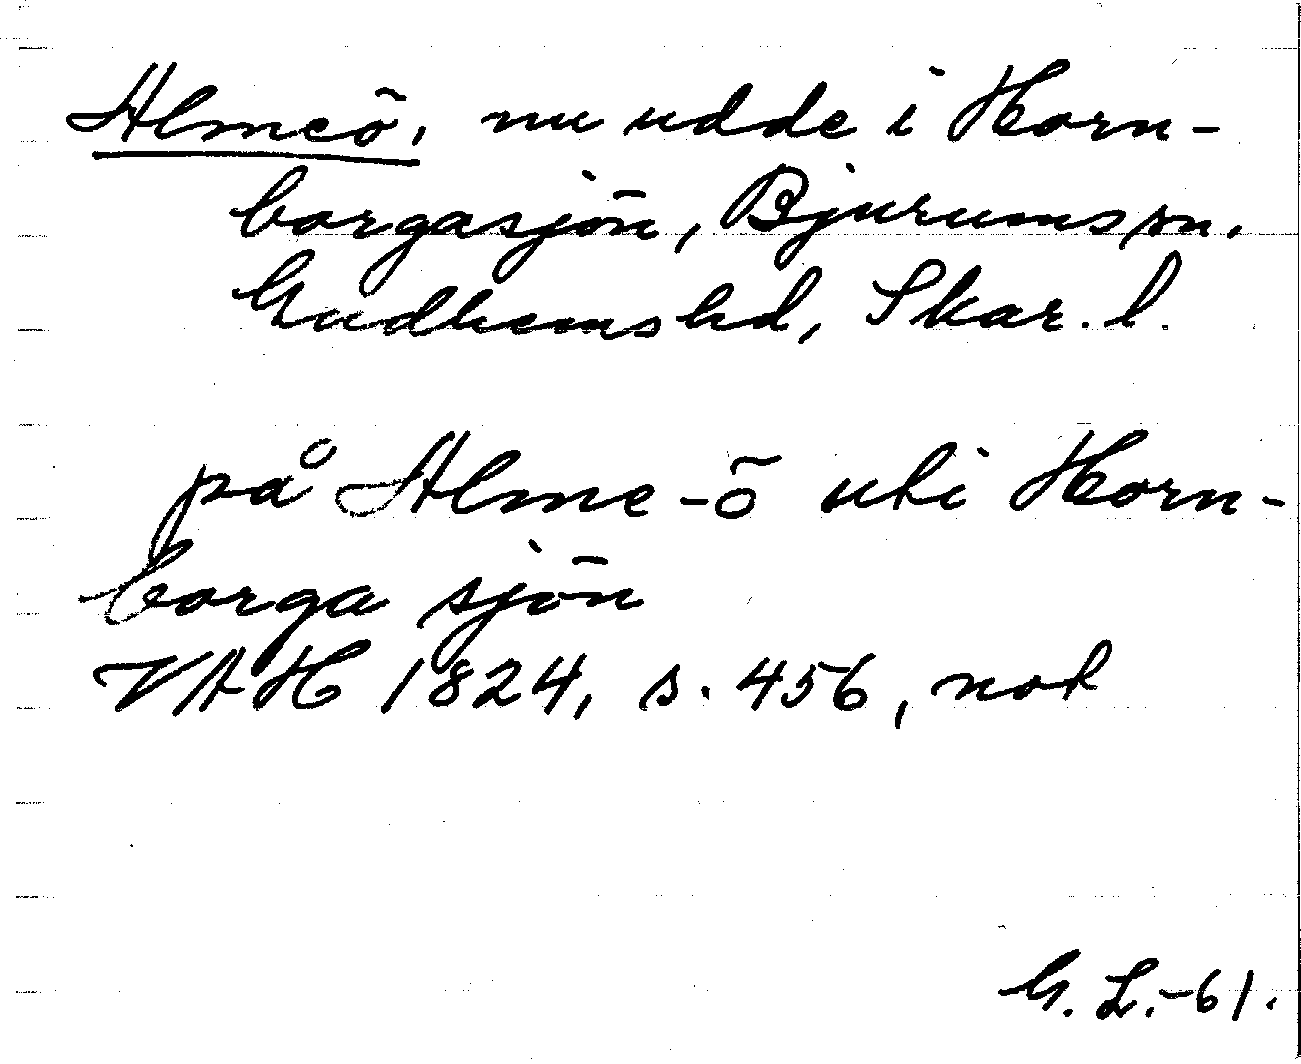 Almeö, nu udde i Horn-
borgasjön, Bjurums sn.
Gudhems hd, Skar. l.
på Alme-ö uti Horn-
borga sjön
VAH 1824, s. 456, not
G. L. -61.